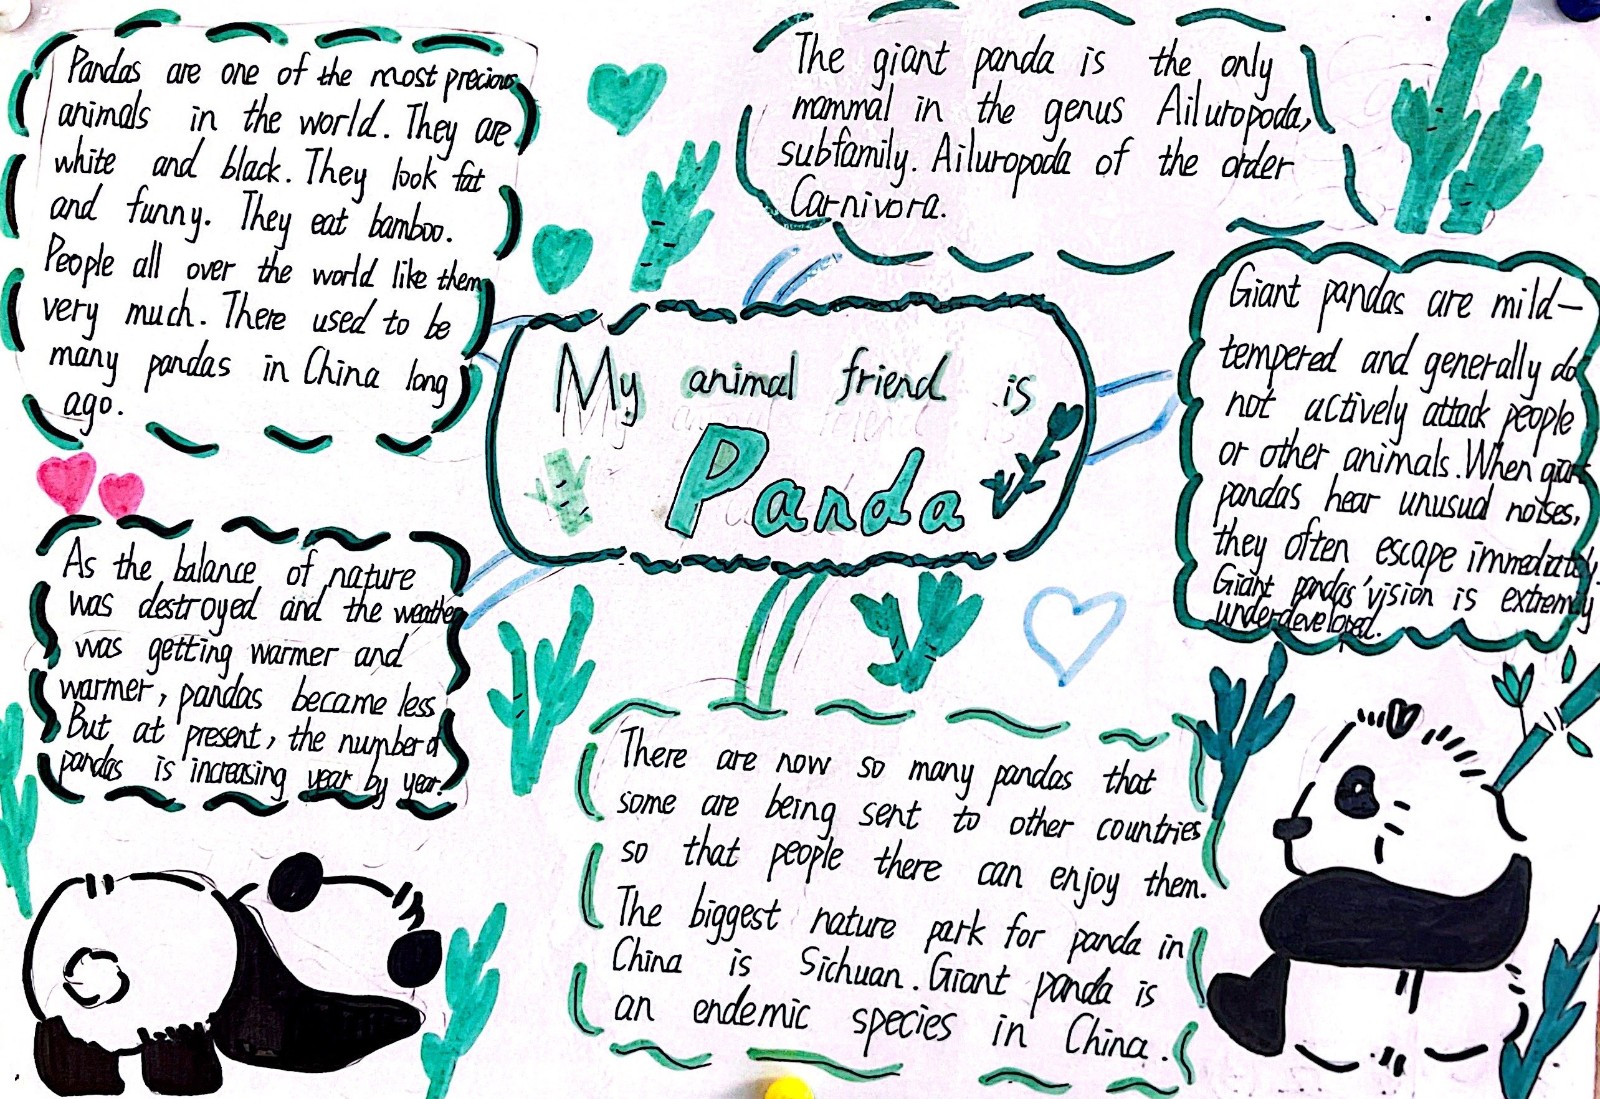 Pandas are one of the most precious
animals in the world. They are
white and black. They look fat
and funny. They eat bamboo.
People all over the world like them
very much. There used to be
many pandas in China long
ago.
The giant panda is the only
mammal in the genus Ailuropoda,
subfamily. Ailuropoda of the order
Carnivora.
My animal friend is
Panda
Giant pandas are mild-
tempered and generally do
not actively attack people
or other animals. When giant
pandas hear unusual noises,
they often escape immediately.
Giant pandas' vision is extremly
underdeveloped.
As the balance of nature
was destroyed and the weather
was getting warmer and
warmer, pandas became less
But at present, the number of
pandas is increasing year by year.
There are now so many pandas that
some are being sent to other countries
so that people there can enjoy them.
The biggest nature park for panda in
China is Sichuan. Giant panda is
an endemic species in China.